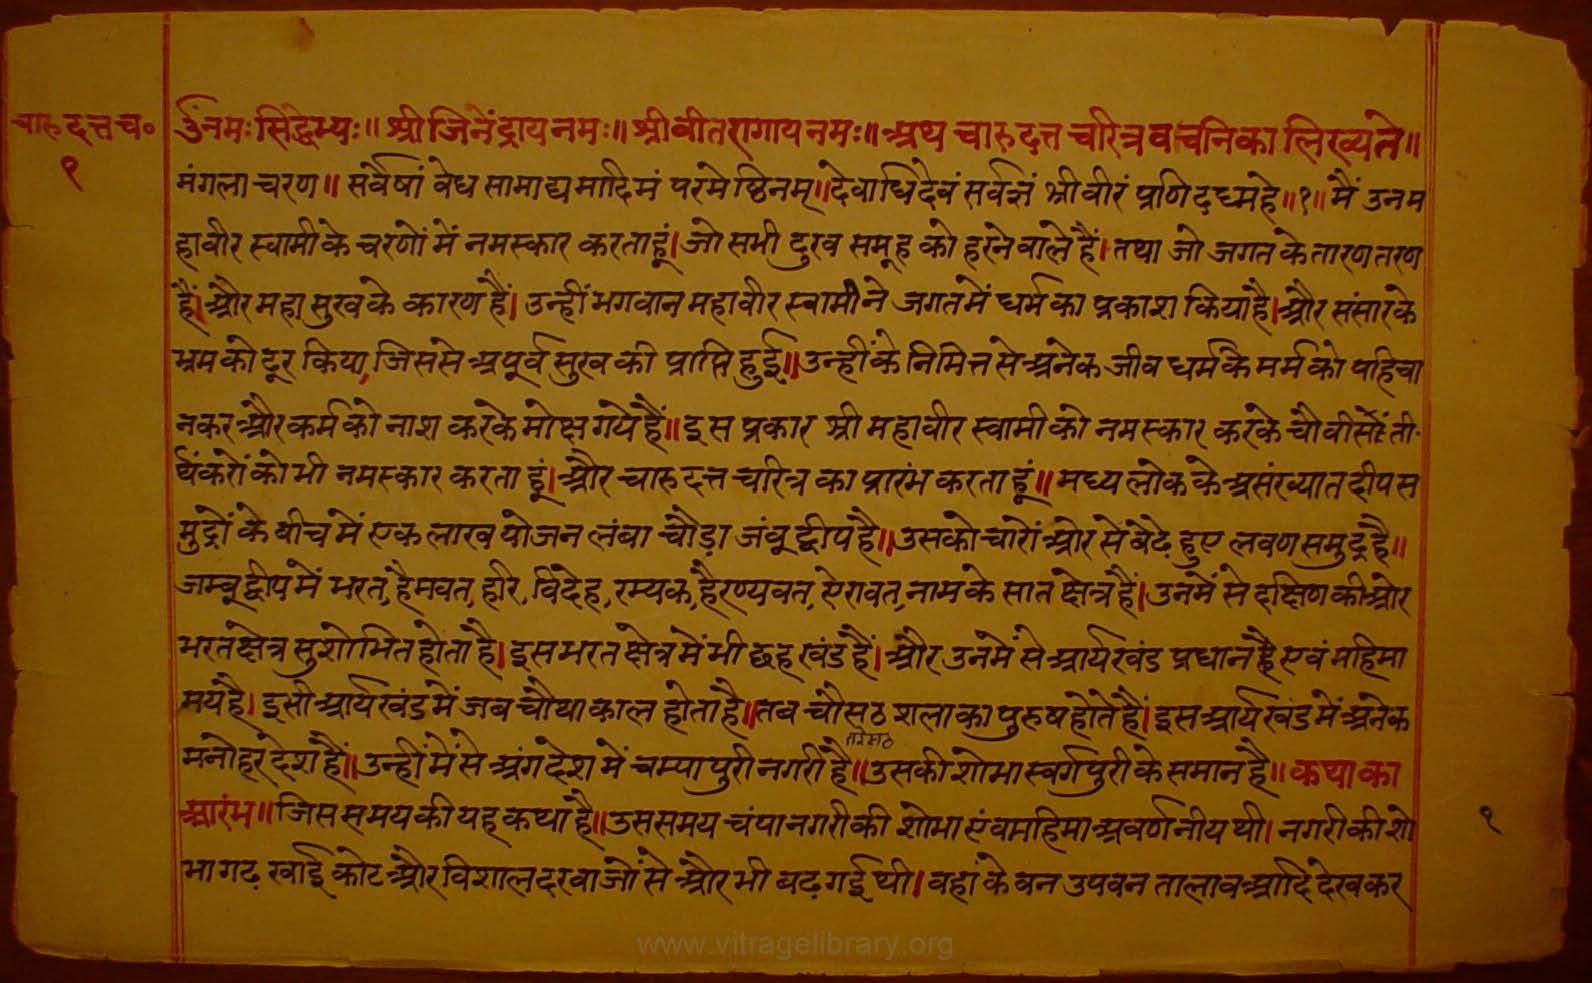 चारुदत्त च०
१
ॐनमः सिद्धेभ्यः॥ श्री जिनेंद्राय नमः॥ श्री वीतरागाय नमः॥ अथ चारुदत्त चरित्र वचनिका लिख्यते॥
मंगला चरण॥ सर्वेषां वेध सामाद्य मादिमं परमेष्ठिनम्॥ देवाधिदेवं सर्वज्ञं श्री वीरं प्रणिदध्महे॥१॥ मैं उन म
हावीर स्वामी के चरणों में नमस्कार करता हूं। जो सभी दुख समूह को हरने वाले हैं। तथा जो जगत के तारण तरण
हैं। और महा सुख के कारण हैं। उन्हीं भगवान महावीर स्वामी ने जगत में धर्म का प्रकाश किया है। और संसार के
भ्रम को दूर किया, जिससे अपूर्व सुख की प्राप्ति हुई॥ उन्हीं के निमित्त से अनेक जीव धर्म के मर्म को पहिचा
नकर और कर्म को नाश करके मोक्ष गये हैं॥ इस प्रकार श्री महावीर स्वामी को नमस्कार करके चौवीसों ती-
र्थंकरों को भी नमस्कार करता हूं। और चारुदत्त चरित्र का प्रारंभ करता हूं॥ मध्य लोक के असंख्यात द्वीप स
मुद्रों के बीच में एक लाख योजन लंबा चौड़ा जंबू द्वीप है॥ उसको चारों ओर से बेढे हुए लवण समुद्र है॥
जम्बू द्वीप में भरत, हैमवत, हरि, विदेह, रम्यक, हैरण्यवत, ऐरावत, नाम के सात क्षेत्र हैं। उनमें से दक्षिण की ओर
भरत क्षेत्र सुशोभित होता है। इस भरत क्षेत्र में भी छह खंड हैं। और उनमें से आर्य खंड प्रधान है एवं महिमा
मय है। इसी आर्य खंड में जब चौथा काल होता है॥ तब चौसठ शलाका पुरुष होते हैं। इस आर्य खंड में अनेक
तरेसठ
मनोहर देश हैं॥ उन्हीं में से अंग देश में चम्पा पुरी नगरी है॥ उसकी शोभा स्वर्गपुरी के समान है॥ कथा का
आरंभ॥ जिस समय की यह कथा है॥ उस समय चंपा नगरी की शोभा एंव महिमा अवर्णनीय थी। नगरी की शो
१
भा गढ़ खाई कोट और विशाल दरवाजों से और भी बढ़ गई थी। वहां के वन उपवन तालाव आदि देखकर
www.vitragelibrary.org